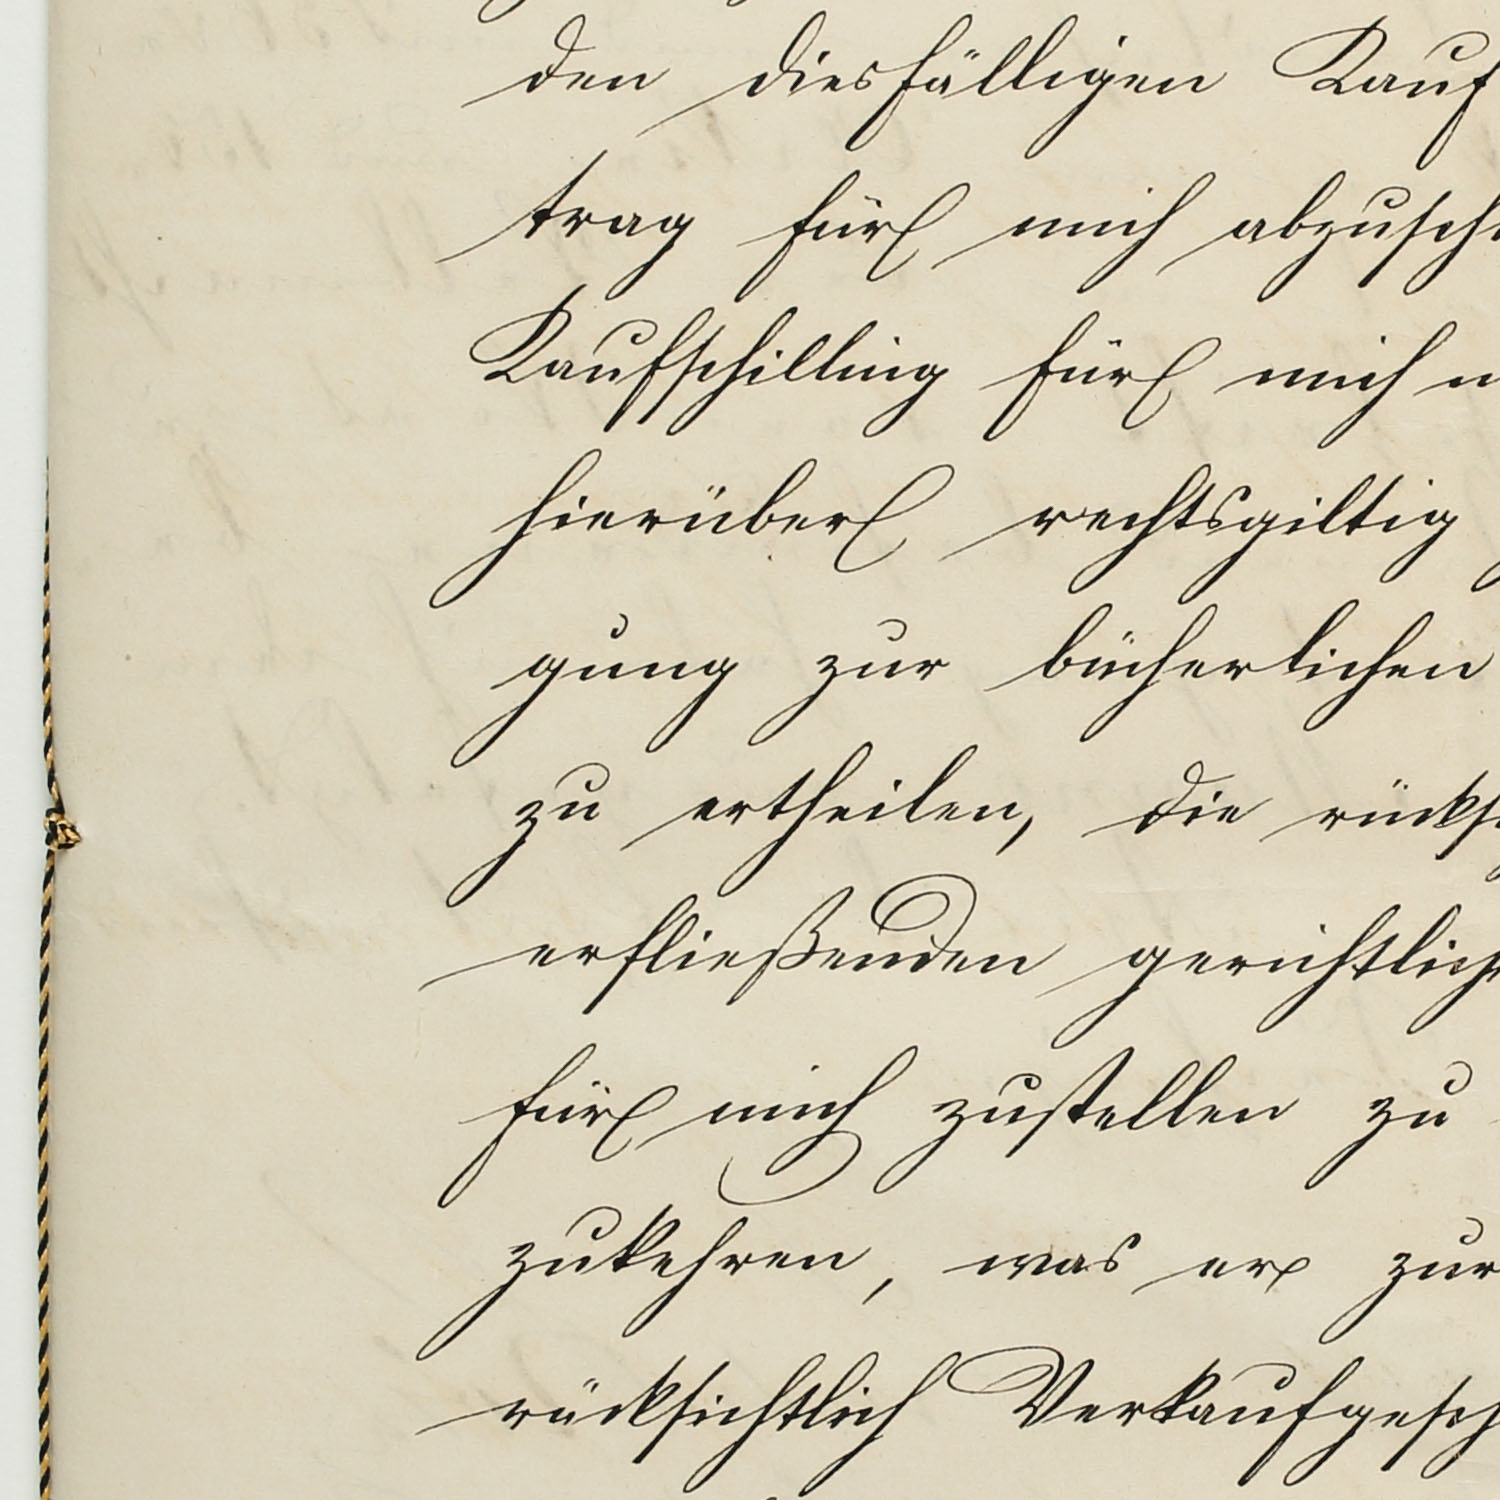 den diesfälligen Kauf
trag für mich abzusch
Kaufschilling für mich
hierüber rechtsgiltig
gung zur bücherlichen
zu ertheilen, die rücks
erfließenden gerichtlich
für mich zustellen zu
zukehren, was er zur
rücksichtlich Verkaufgesch